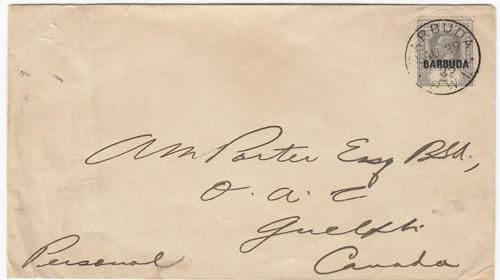 BARBUDA
29
BARBUDA
AM Porter Esq BSA,
O. A. C
Guelph
Personal Canada